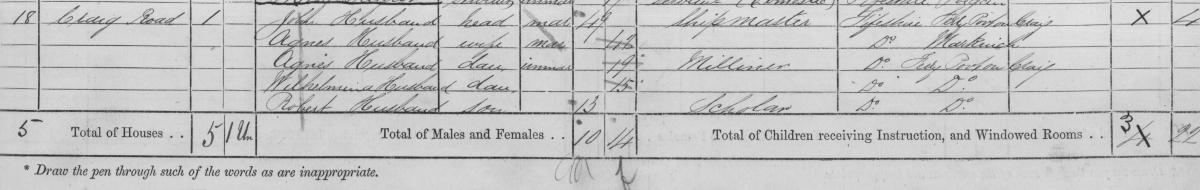 18 Craig Road 1 John Husband head mar 49 Shipmaster Fifeshire Ferry Port on Craig X 4
Agnes Husband wife mar 42 Do Markinch
Agnes Husband dau unmar 19 Milliner Do Ferry Port on Craig
Wilhelmina Husband dau 15 Do Do
Robert Husband son 13 Scholar Do Do
5 Total of Houses . . 5 1 Un. Total of Males and Females . . 10 14 Total of Children receiving Instruction, and Windowed Rooms . . 3 22
* Draw the pen through such of the words as are inappropriate.